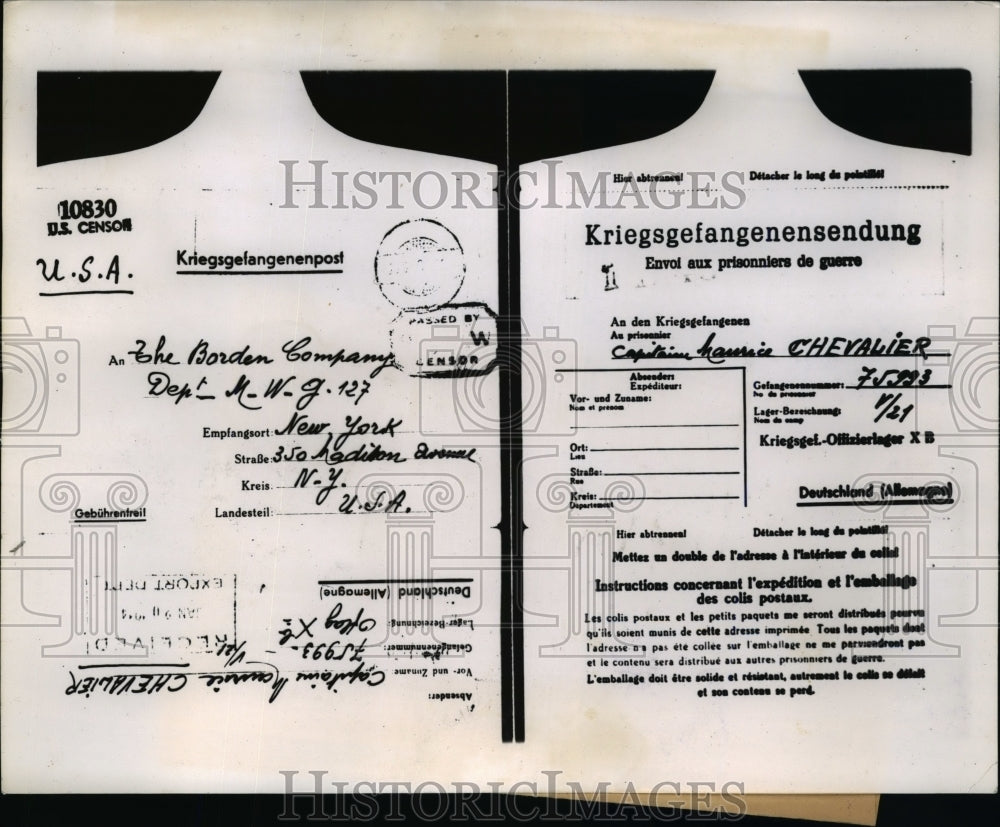 HISTORICIMAGES
10830
U.S. CENSOR
U.S.A.
Kriegsgefangenenpost
PASSED BY
W
CENSOR
An The Borden Company
Dept M-W-G. 127
Empfangsort: New York
Straße: 350 Madison Avenue
Kreis: N-Y.
Landesteil: U.S.A.
Gebührenfrei
EXPORT DEPT
JAN
RECEIVED
Deutschland (Allemagne)
Lager-Bezeichnung: Oflag XB
Gefangenennummer: 75993-
Vor- und Zuname:
Capitaine Maurice CHEVALIER
Absender:
Hier abtrennen! Détacher le long du pointillé!
Kriegsgefangenensendung
Envoi aux prisonniers de guerre
An den Kriegsgefangenen
Au prisonnier
Capitaine Maurice CHEVALIER
Absender:
Expéditeur:
Vor- und Zuname:
Nom et prénom
Ort:
Lieu
Straße:
Rue
Kreis:
Département
Gefangenennummer: 75993
No du prisonnier
Lager-Bezeichnung: V/21
Nom du camp
Kriegsgef.-Offizierlager X B
Deutschland (Allemagne)
Hier abtrennen! Détacher le long du pointillé!
Mettez un double de l'adresse à l'intérieur du colis!
Instructions concernant l'expédition et l'emballage
des colis postaux.
Les colis postaux et les petits paquets me seront distribués pourvu
qu'ils soient munis de cette adresse imprimée Tous les paquets dont
l'adresse n'a pas été collée sur l'emballage ne me parviendront pas
et le contenu sera distribué aux autres prisonniers de guerre.
L'emballage doit être solide et résistant, autrement le colis se défait
et son contenu se perd.
HISTORICIMAGES